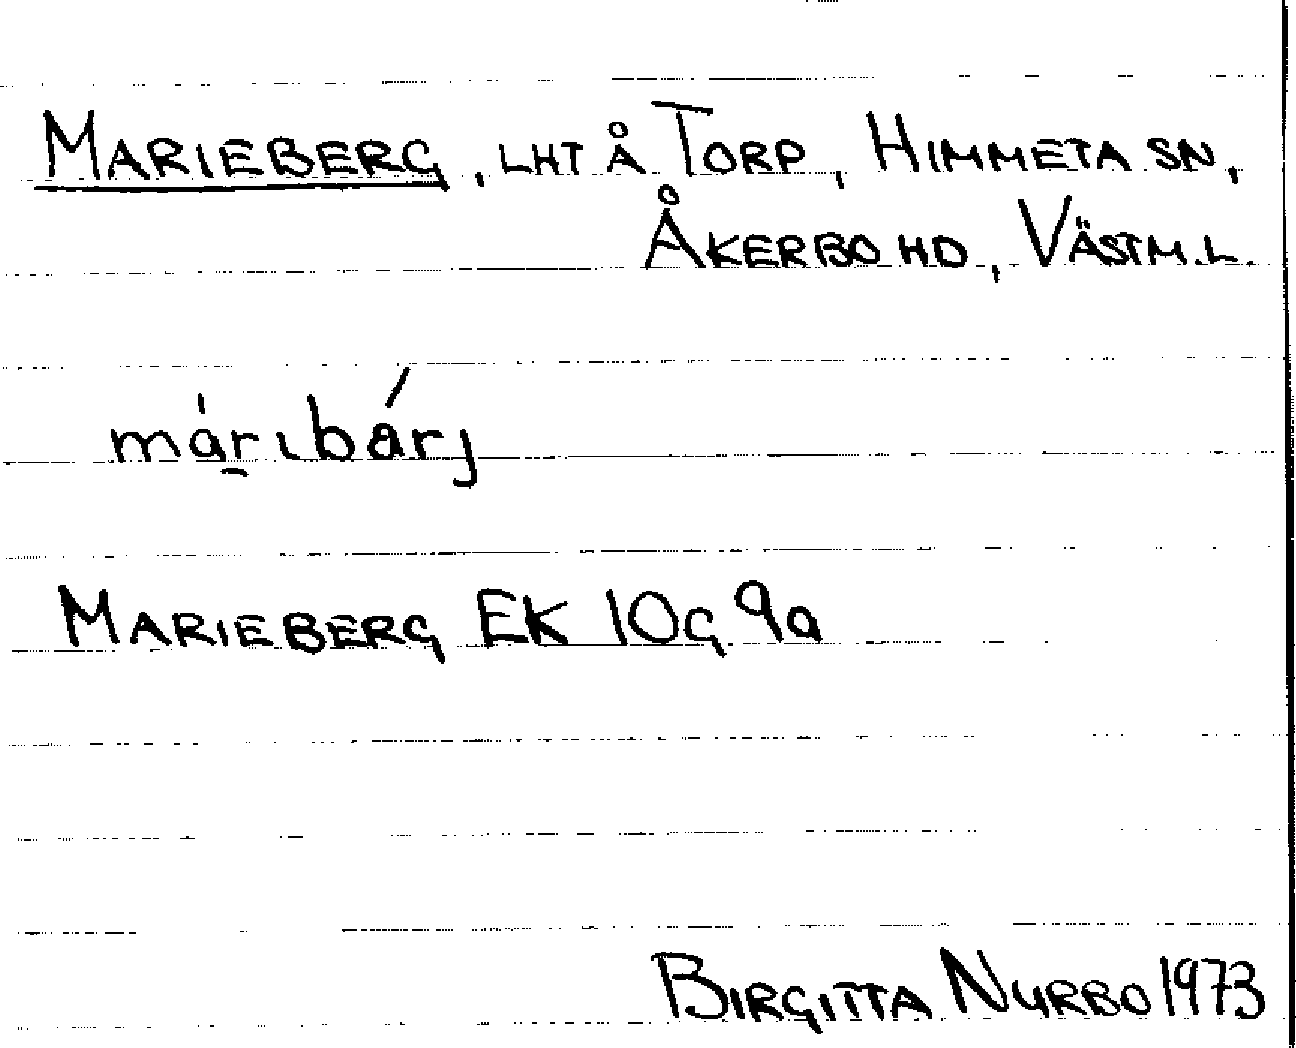 MARIEBERG, LHT Å TORP, HIMMETA SN,
ÅKERBO HD, VÄSTM.L.
márıbárj
MARIEBERG EK 10G 9a
BIRGITTA NYRBO 1973